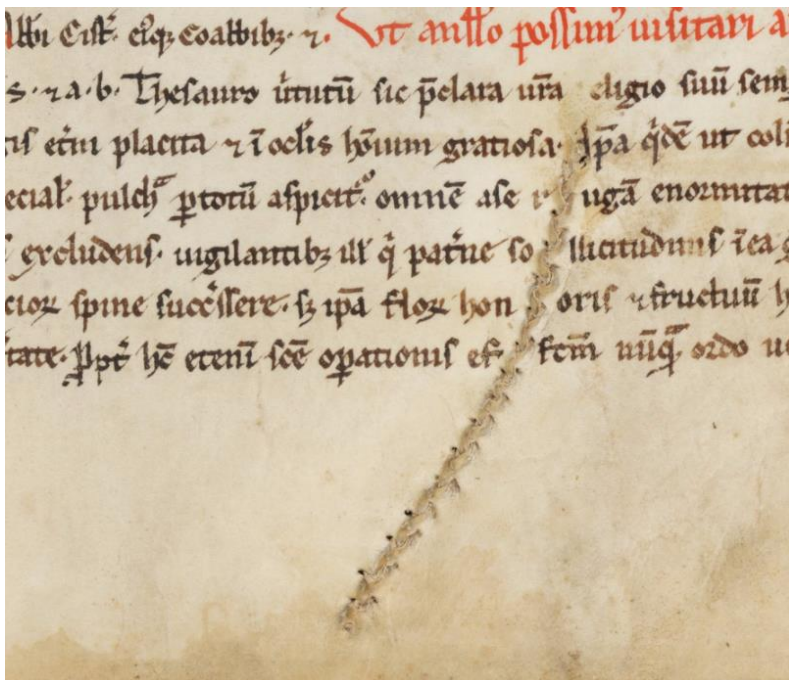 Abbi Cist̄. eiꝰqꝫ Coabbibꝫ. ⁊c. Ut nullo possim᷒ uisitari a
S. ⁊ a. b. Thesauro u̍tutū sic p̄clara ur̄a eligio suū sem
tis et̄ni placita ⁊ ī ocl̄is ho̅ium gratiosa. Ip̄a q̍dē ut coli
ecial̄. pulchᵃ ꝑ totū aspicit᷒. omnē a se r ugā enormitat
excludens. uigilantibꝫ ill̄ q̍ pat̄ne so llicitudinis ī ea
cioꝝ spine succ̄ssere. sꝫ ip̄a floꝝ hon oris ⁊ fructuū h
tate. ꝓpt̄ hc̄ etenī sc̄e oꝑationis ef fct̄m nūqᵃ ordo u